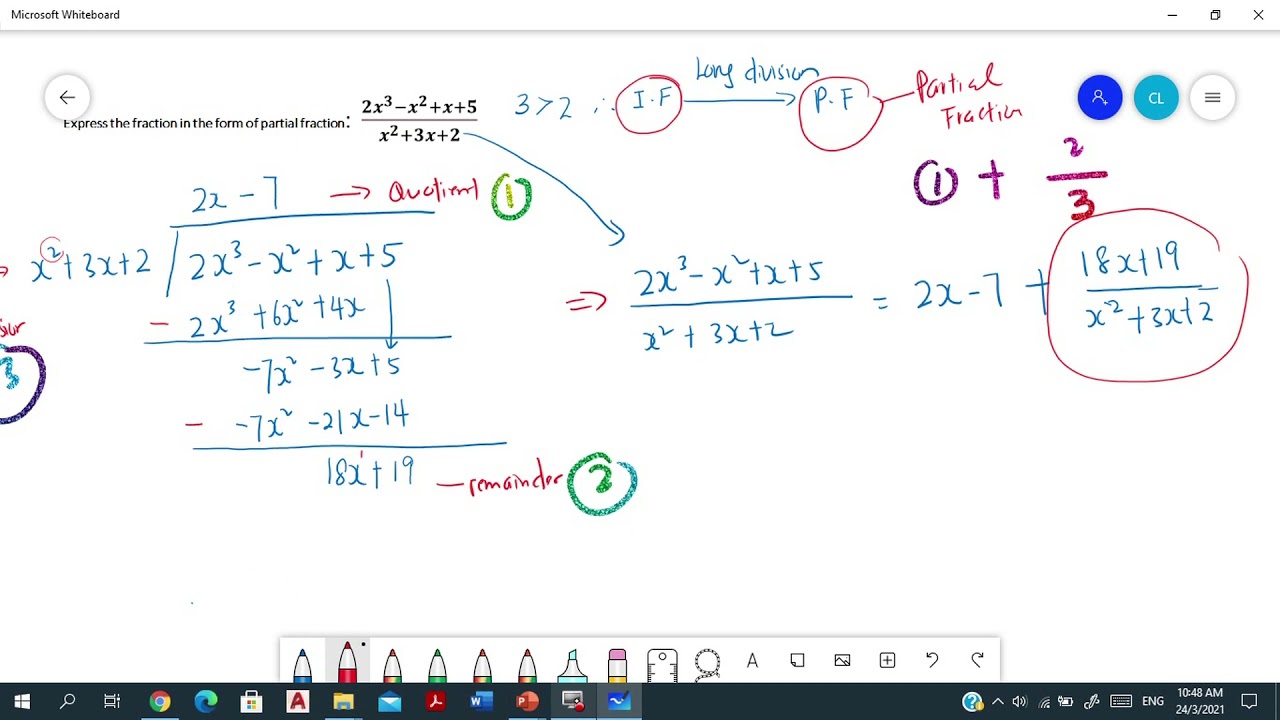 Microsoft Whiteboard
Express the fraction in the form of partial fraction: (2x³−x²+x+5)/(x²+3x+2)
3 > 2 ∴ I.F Long division P.F Partial Fraction
CL
① + 2/3
2x − 7 → Quotient ①
x² + 3x + 2 ) 2x³ − x² + x + 5
− 2x³ + 6x² + 4x
-7x² − 3x + 5
− -7x² − 21x − 14
18x + 19 — remainder ②
3
⇒ (2x³ − x² + x + 5)/(x² + 3x + 2) = 2x − 7 + (18x + 19)/(x² + 3x + 2)
A
ENG
10:48 AM
24/3/2021